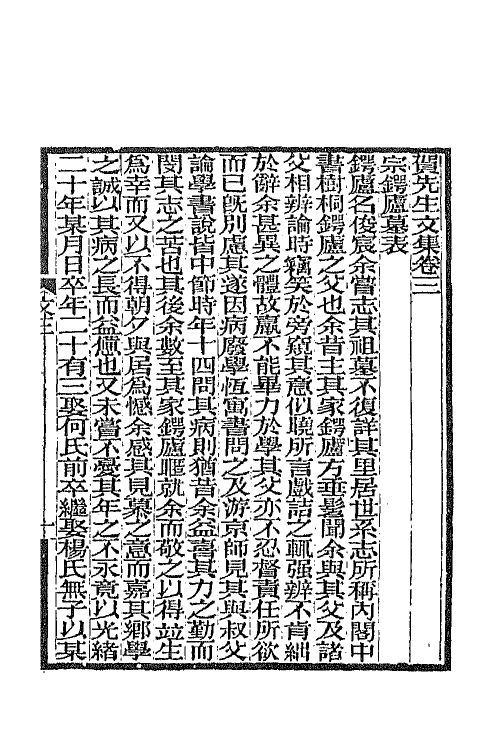 賀先生文集卷三
宗鍔廬墓表
鍔廬名俊宸余嘗志其祖墓不復詳其里居世系志所稱內閣中
書樹桐鍔廬之父也余昔主其家鍔廬方垂髫聞余與其父及諸
父相辨論時竊笑於旁窺其意似曉所言戲詰之輒强辨不肯絀
於辭余甚異之體故羸不能畢力於學其父亦不忍督責任所欲
而已旣別慮其遂因病廢學恆寓書問之及游京師見其與叔父
論學書說皆中節時年十四問其病則猶昔余益嘉其力之勤而
閔其志之苦也其後余數至其家鍔廬暱就余而敬之以得竝生
爲幸而又以不得朝夕與居爲憾余感其見慕之意而嘉其鄉學
之誠以其病之長而益憊也又未嘗不憂其年之不永竟以光緒
二十年某月日卒年二十有三娶何氏前卒繼娶楊氏無子以某
文三
十一